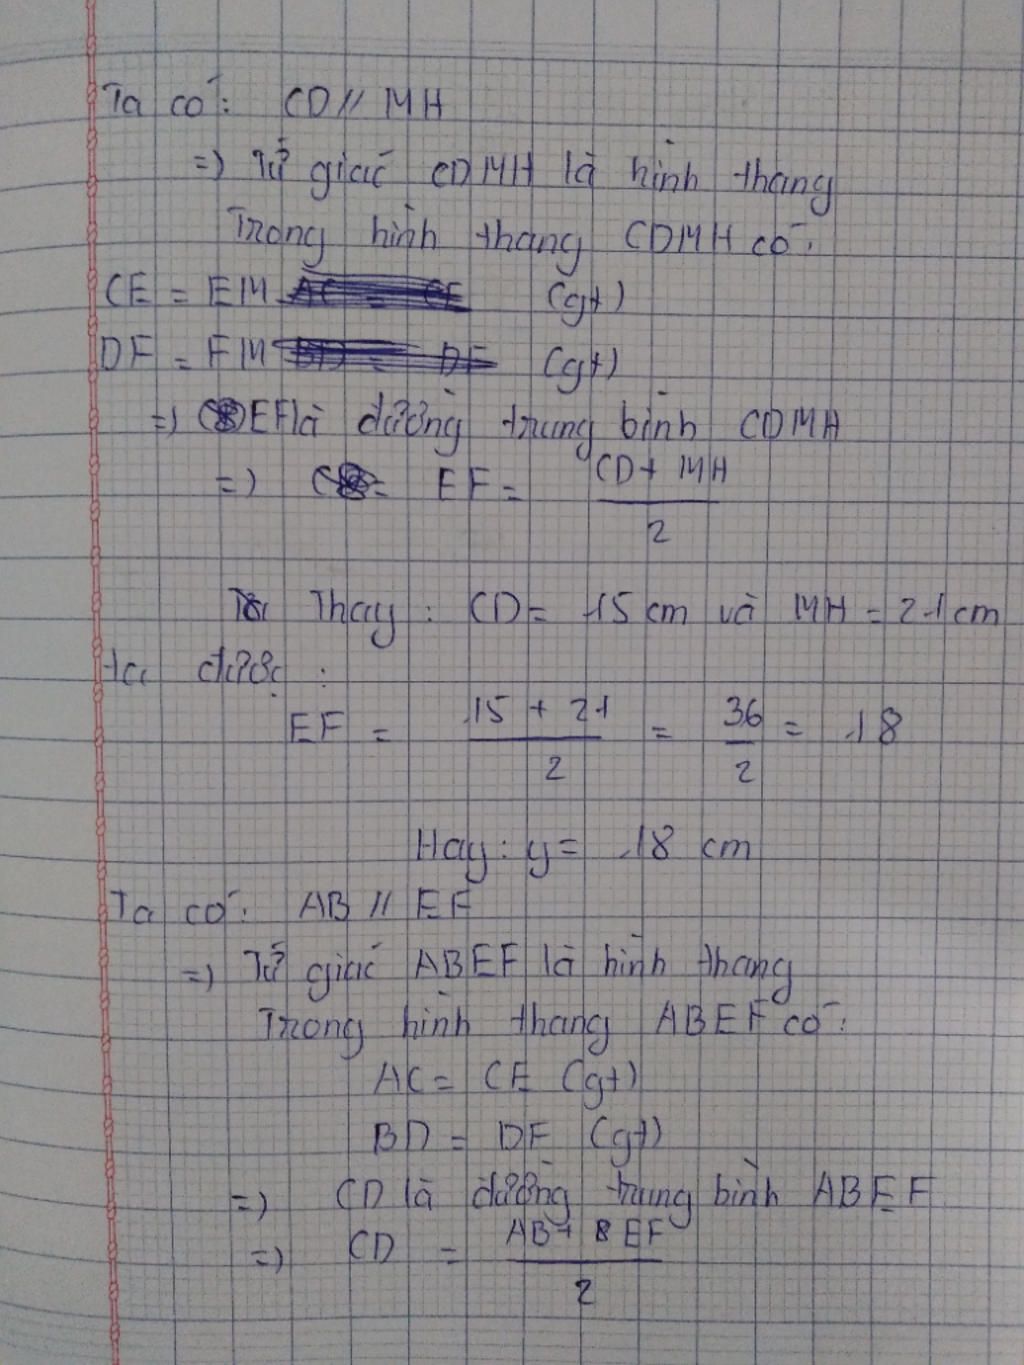 Ta có: CD // MH
=> Tứ giác CDMH là hình thang
Trong hình thang CDMH có:
CE = EM (gt)
DF = FM (gt)
=> EF là đường trung bình CDMH
=> EF = CD + MH / 2
Thay: CD = 15 cm và MH = 21 cm
ta được:
EF = 15 + 21 / 2 = 36 / 2 = 18
Hay: y = 18 cm
Ta có: AB // EF
=> Tứ giác ABEF là hình thang
Trong hình thang ABEF có:
AC = CE (gt)
BD = DF (gt)
=> CD là đường trung bình ABEF
=> CD = AB + EF / 2